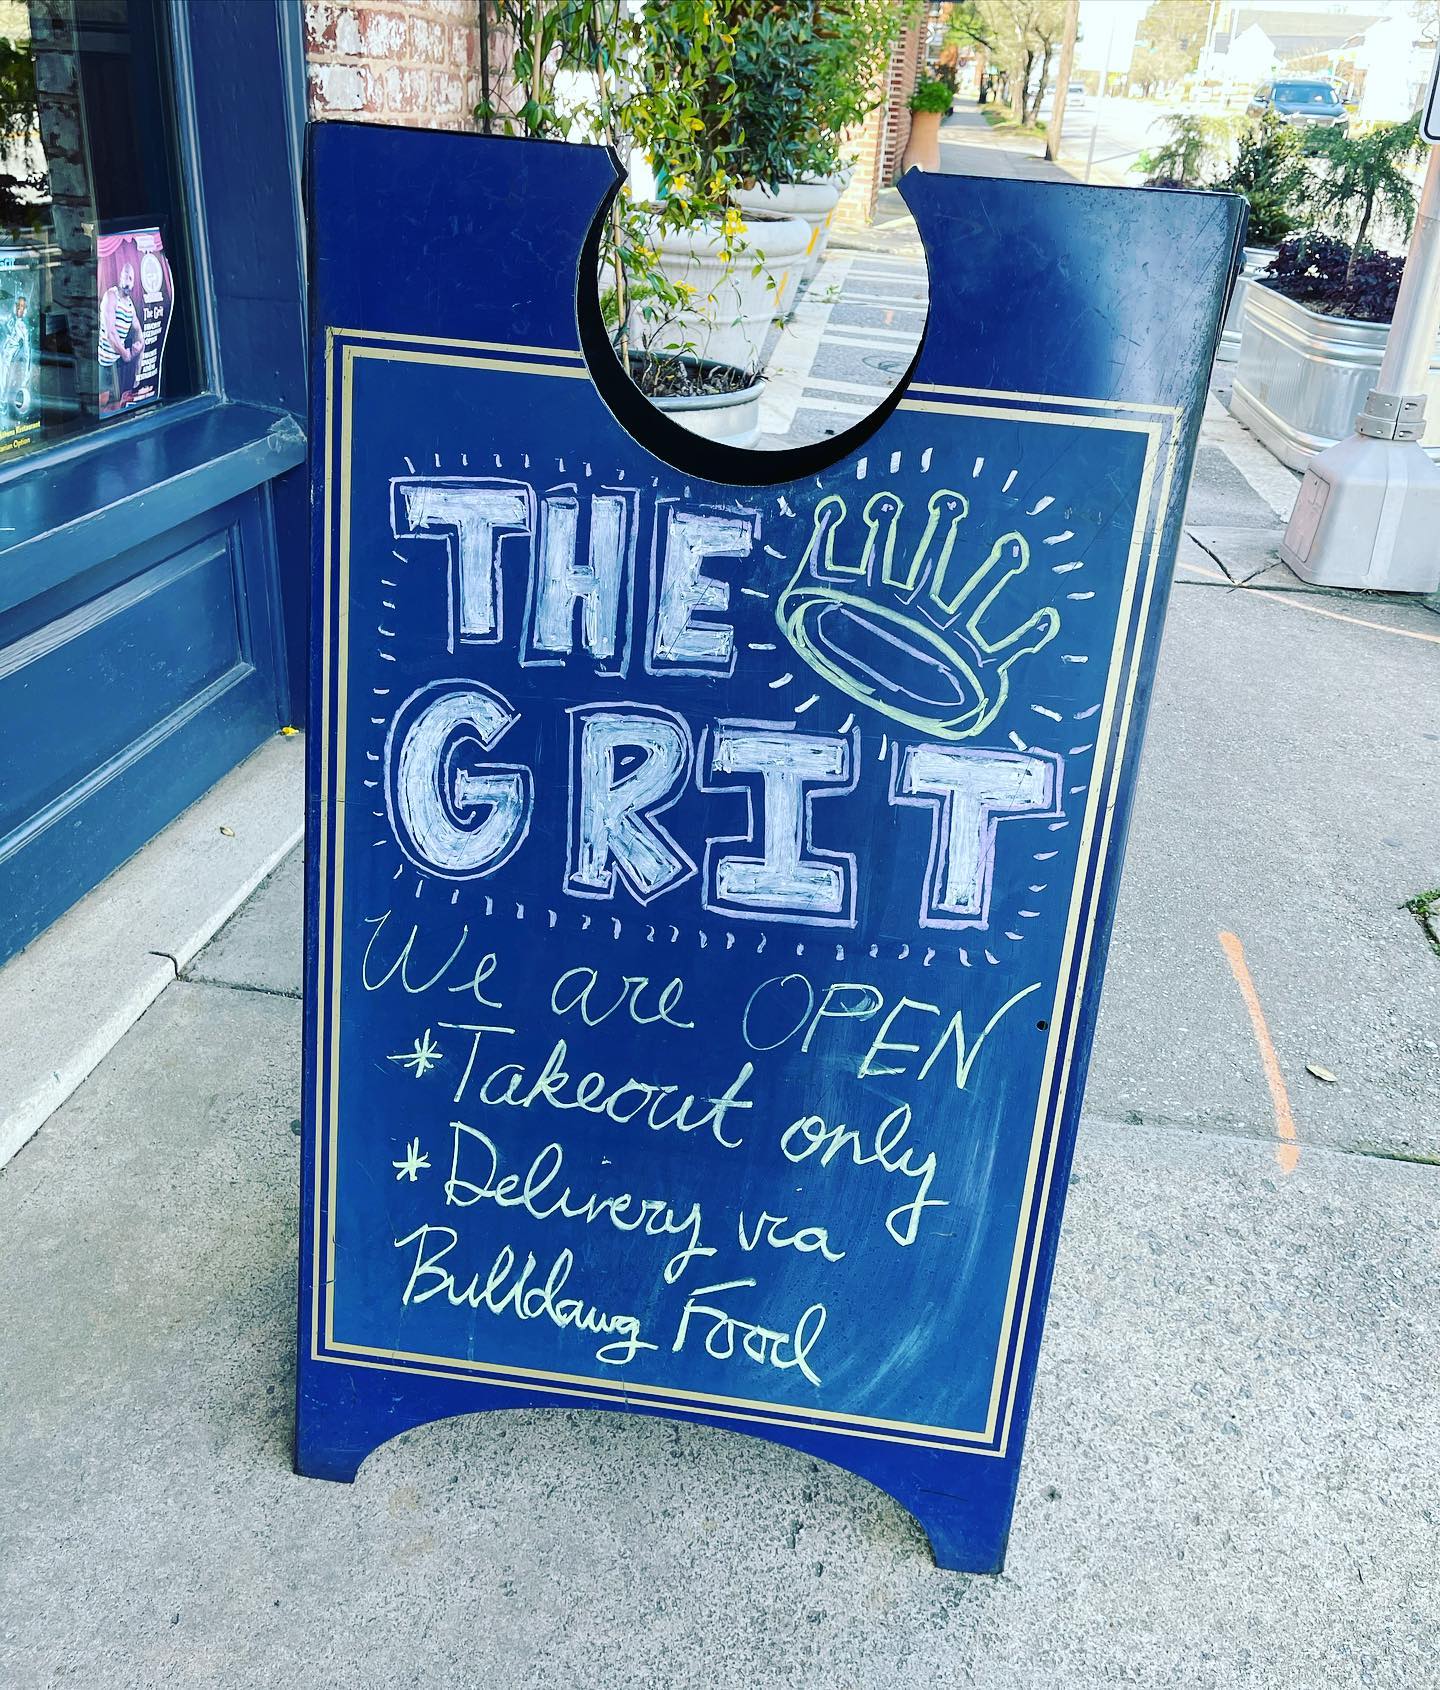 THE
GRIT
We are OPEN
*Takeout only
*Delivery via
Bulldawg Food
The Grit